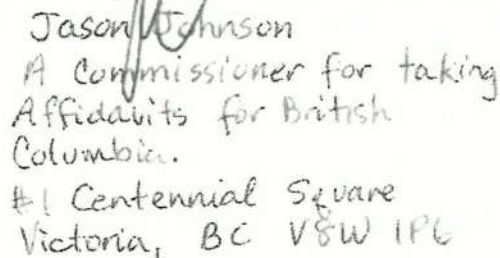 Jason Johnson
A Commissioner for taking
Affidavits for British
Columbia.
#1 Centennial Square
Victoria, BC V8W 1P6